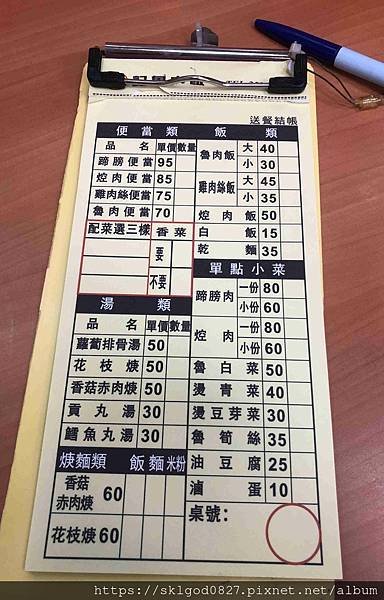 送餐結帳
便當類
品名 單價 數量
蹄膀便當 95
焢肉便當 85
雞肉絲便當 75
魯肉便當 70
配菜選三樣 香菜
要
不要
湯類
品名 單價 數量
蘿蔔排骨湯 50
花枝焿 50
香菇赤肉焿 50
貢丸湯 30
鱈魚丸湯 30
焿麵類 飯 麵 米粉
香菇
赤肉焿 60
花枝焿 60
飯類
魯肉飯 大 40
小 30
雞肉絲飯 大 45
小 35
焢肉飯 50
白飯 15
乾麵 35
單點小菜
蹄膀肉 一份 80
小份 60
焢肉 一份 80
小份 60
魯白菜 50
燙青菜 40
燙豆芽菜 30
魯筍絲 35
油豆腐 25
滷蛋 10
桌號:
https://sklgod0827.pixnet.net/album